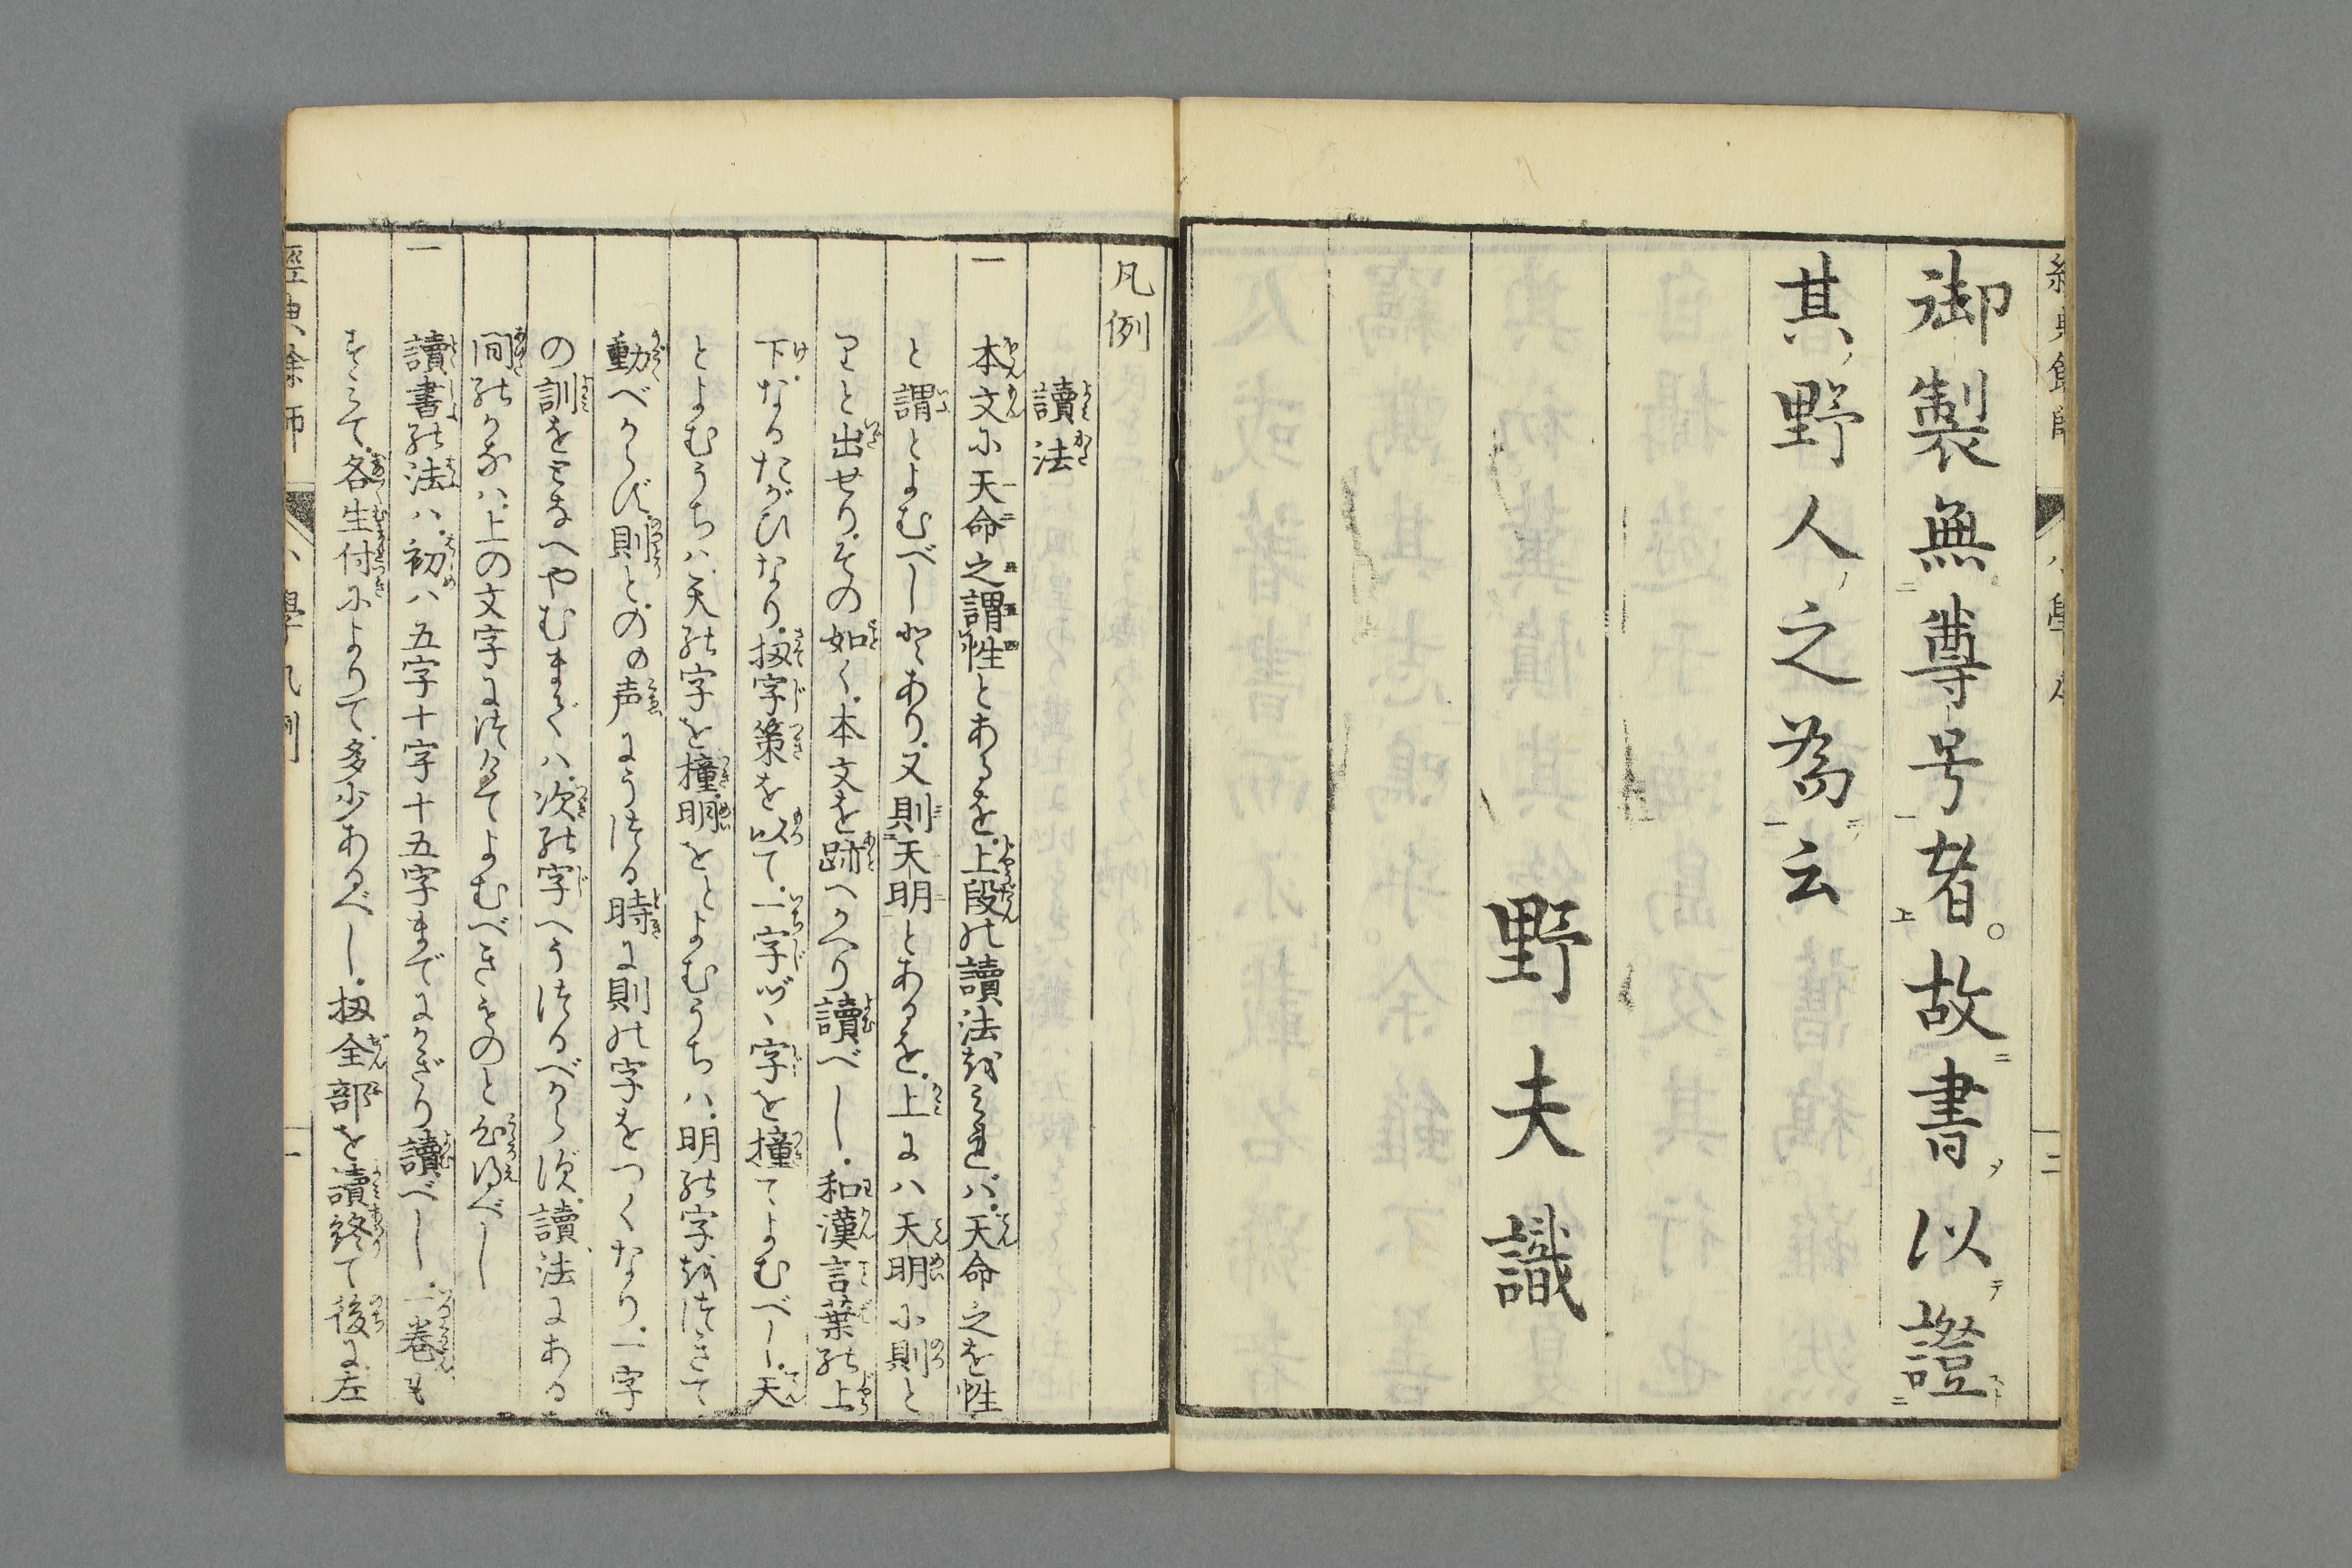 御製無尊号者。故書以證
其野人之為云
野夫識
凡例
讀法
一 本文に天命之謂性とあるを.上段の讀法をみれバ.天命之を性
と謂とよむべしとあり.又則天明とあるを.上にハ天明に則と
りと出せり.その如く.本文を跡へかへり讀べし.和漢言葉の上
下なるたがひなり.扨字策を以て.一字づゝ字を撞てよむべし.天
とよむうちハ.天の字を撞.明をとよむうちハ.明の字をつきて
動べからず.則との声にうつる時に則の字をつくなり.一字
の訓をとなへやむまでハ.次の字へうつるべからず.讀法にある
間のかなハ.上の文字につけてよむべきものと心得べし
一 讀書の法ハ.初ハ五字十字十五字までにかぎり讀べし.一巻も
すみて.各生付によりて.多少あるべし.扨全部を讀終て後に.左
經典餘師 小學凡例 一